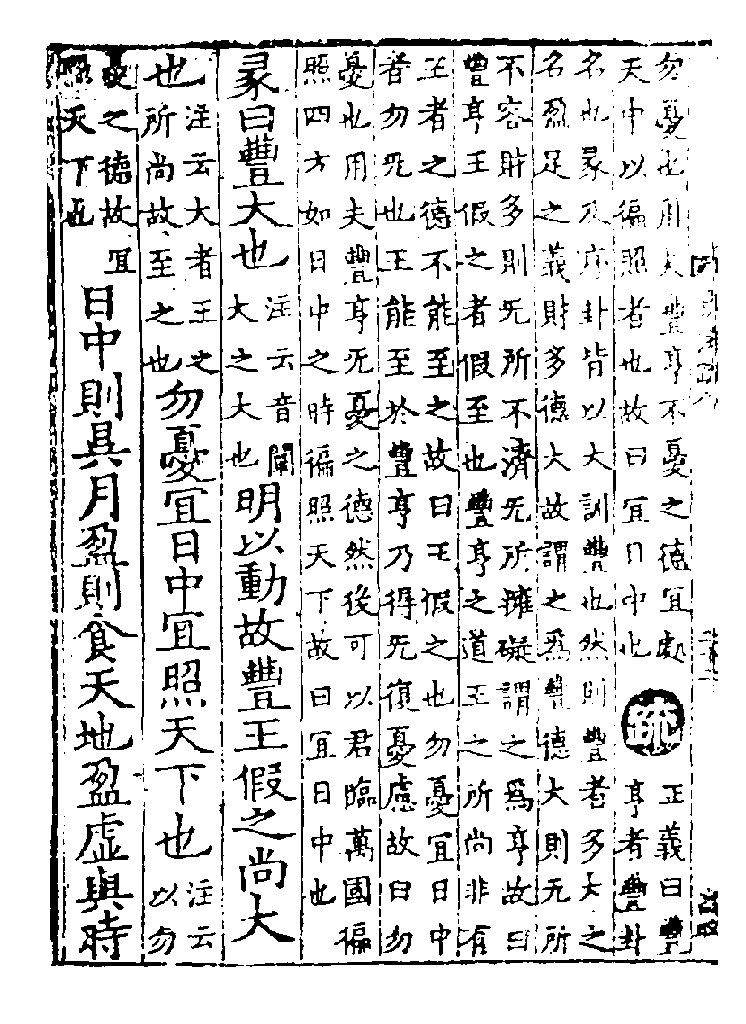 勿憂也用夫豐亨不憂之德宜處
天中以徧照者也故曰宜日中也
疏
正義曰豐
亨者豐卦
名也彖及序卦皆以大訓豐也然則豐者多大之
名盈足之義財多德大故謂之爲豐德大則无所
不容財多則无所不濟无所擁礙謂之爲亨故曰
豐亨王假之者假至也豐亨之道王之所尚非有
王者之德不能至之故曰王假之也勿憂宜日中
者勿无也王能至於豐亨乃得无復憂慮故曰勿
憂也用夫豐亨无憂之德然後可以君臨萬國徧
照四方如日中之時徧照天下故曰宜日中也
彖曰豐大也
注云音闡
大之大也
明以動故豐王假之尚大
也
注云大者王之
所尚故至之也
勿憂宜日中宜照天下也
注云
以勿
憂之德故宜
照天下也
日中則昃月盈則食天地盈虛與時